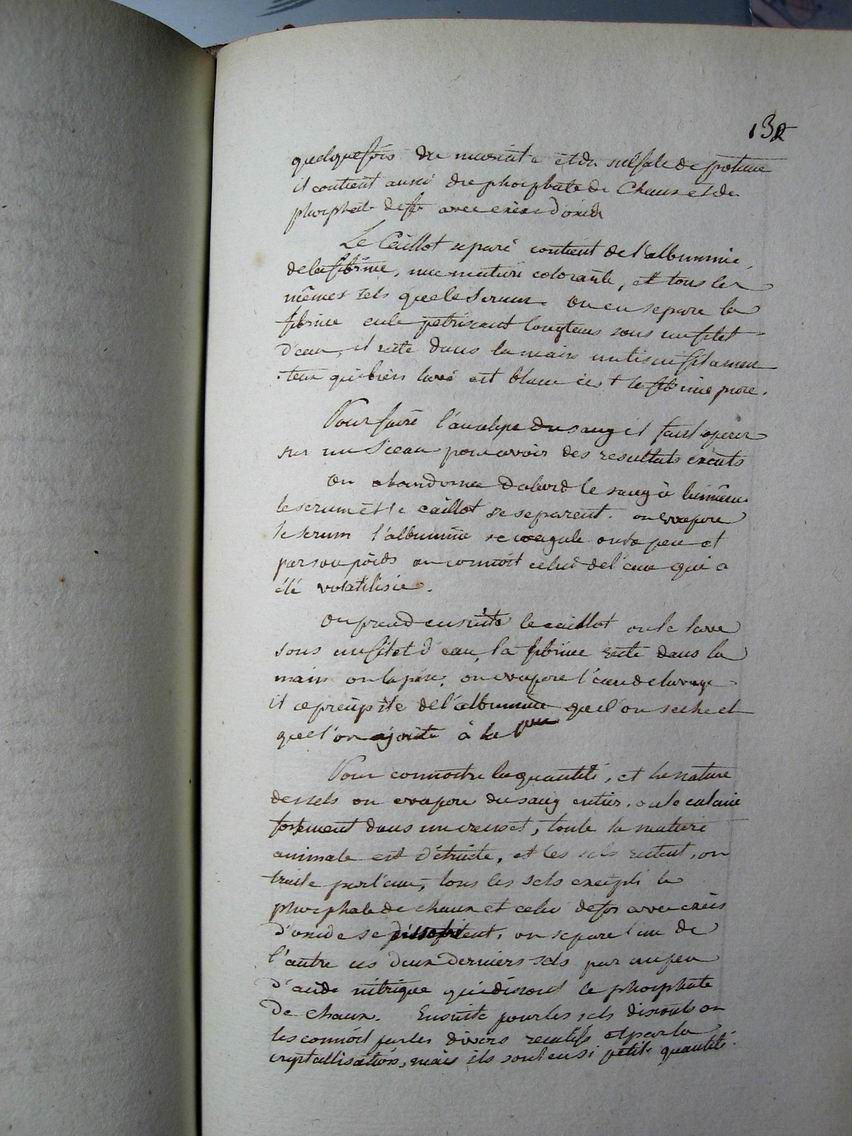 132
quelquefois du muriate et du sulfate de potasse
il contient aussi du phosphate de Chaux et de
phosphate de fer avec excès d'oxide
Le Caillot separé contient de l'albumine,
de la fibrine, une matiere colorante, et tous les
mêmes sels que le serum. On en separe la
fibrine en le petrissant longtems sous un filet
d'eau, il reste dans la main un tissu filamen
-teux qui bien lavé est blanc c'est la fibrine pure.
Pour faire l'analyse du sang il faut operer
sur un Sceau pour avoir des resultats exacts
On abandonne d'abord le sang à lui même
le serum et le caillot se separent. on evapore
le serum l'albumine se coagule on la pese et
par son poids on connoit celui de l'eau qui a
été volatilisée.
On prend ensuite le caillot on le lave
sous un filet d'eau, la fibrine reste dans la
main on la pese, on evapore l'eau de lavage
il se precipite de l'albumine que l'on seche et
que l'on ajoute à la 1ere
Pour connoitre la quantité, et la nature
des sels on evapore du sang entier, on le calcine
fortement dans un creuset, toute la matiere
animale est détruite, et les sels restent, on
traite par l'eau, tous les sels excepté le
phosphate de chaux et celui de fer avec excès
d'oxide se dissolvent, on separe l'un de
l'autre ces deux derniers sels par un peu
d'acide nitrique qui dissout le phosphate
de chaux. Ensuite pour les sels dissouts on
les connoit par les divers reactifs et par la
cristallisation, mais ils sont en si petite quantité.